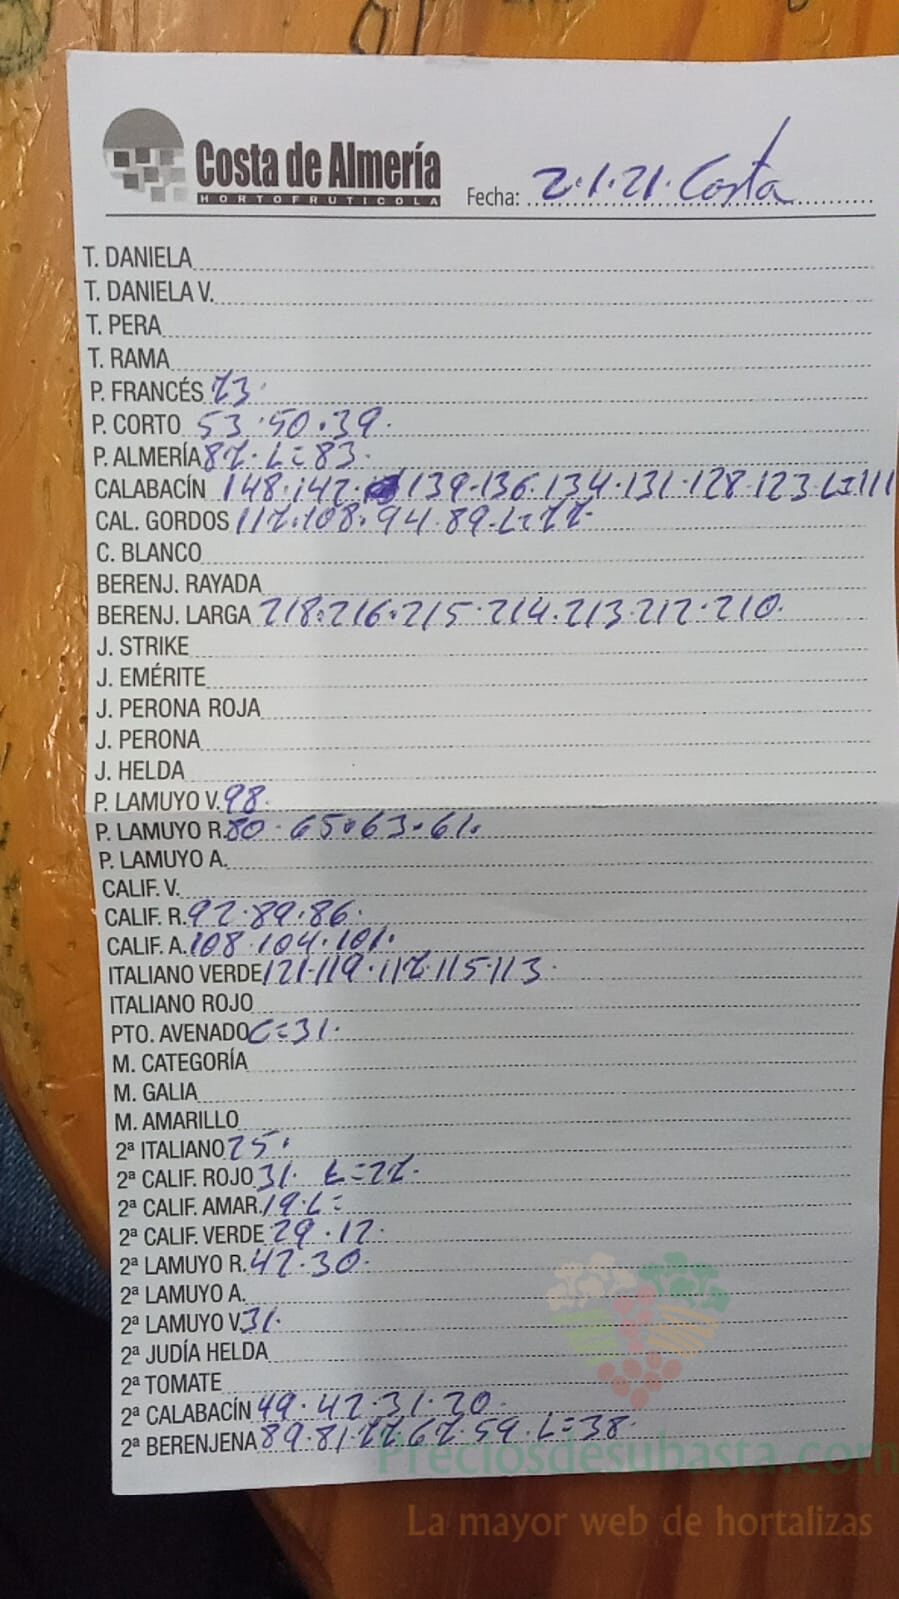 Costa de Almería
HORTOFRUTICOLA
Fecha: 2.1.21. Costa
T. DANIELA
T. DANIELA V.
T. PERA
T. RAMA
P. FRANCÉS 73.
P. CORTO 53.50.39.
P. ALMERÍA 87. L=83.
CALABACÍN 148.142. 139.136.134.131.128.123 L=111
CAL. GORDOS 117.108.94.89.L=77.
C. BLANCO
BERENJ. RAYADA
BERENJ. LARGA 218.216.215.214.213.212.210.
J. STRIKE
J. EMÉRITE
J. PERONA ROJA
J. PERONA
J. HELDA
P. LAMUYO V. 98.
P. LAMUYO R. 80.65.63.61.
P. LAMUYO A.
CALIF. V.
CALIF. R. 92.89.86.
CALIF. A. 108.104.101.
ITALIANO VERDE 121.119.117.115.113.
ITALIANO ROJO
PTO. AVENADO C=31.
M. CATEGORÍA
M. GALIA
M. AMARILLO
2ª ITALIANO 25.
2ª CALIF. ROJO 31. L=27.
2ª CALIF. AMAR. 19.L=
2ª CALIF. VERDE 29.12.
2ª LAMUYO R. 42.30.
2ª LAMUYO A.
2ª LAMUYO V. 31.
2ª JUDÍA HELDA
2ª TOMATE
2ª CALABACÍN 49.42.31.20.
2ª BERENJENA 89.81.77.67.59.L=38.
Preciosdesubasta.com
La mayor web de hortalizas